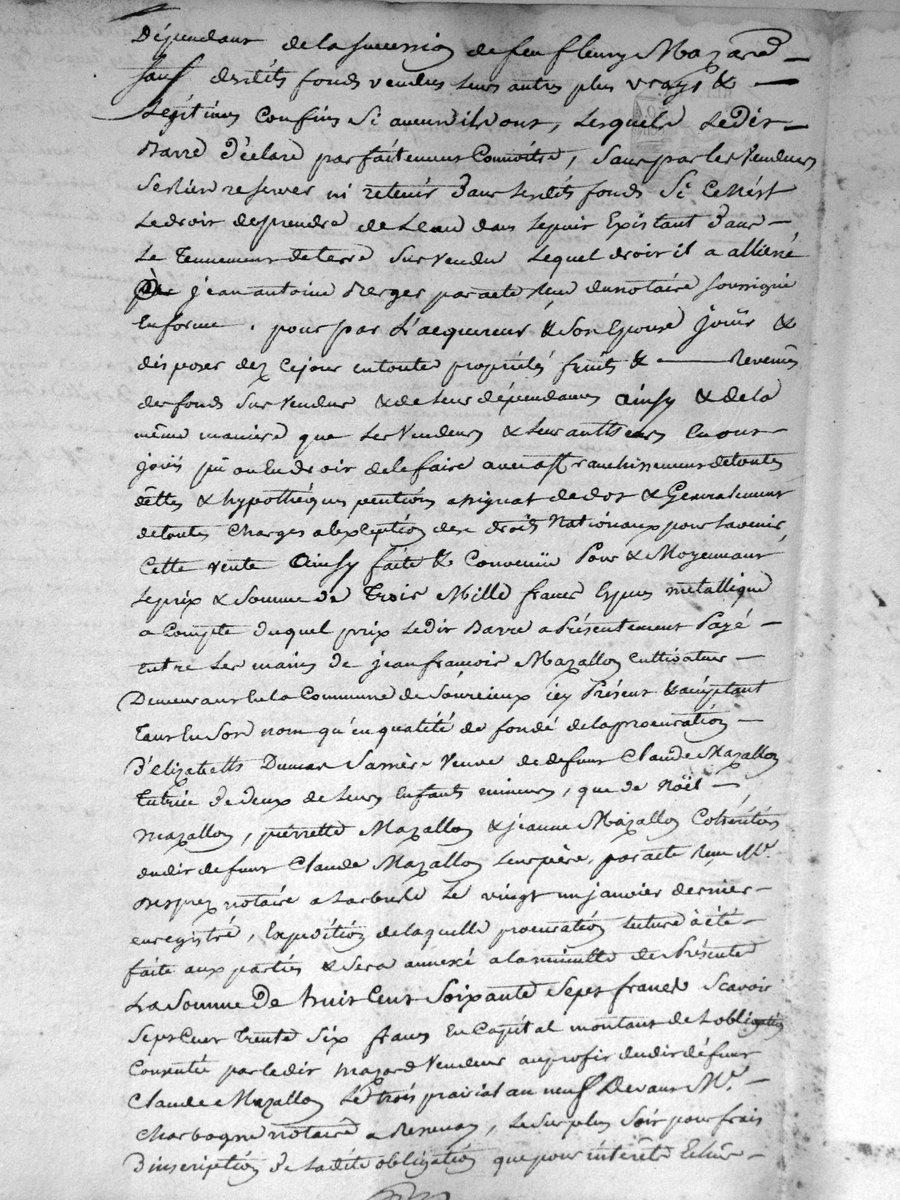 Dépendant de la succession de feu fleury Mazard
sauf desdits fonds vendus leurs autres plus vrays &
Légitimes confins Si aucuns ils ont, Lesquels Ledit
Barre Déclare parfaitement Connoitre, Sans par les Vendeurs
Se rien reserver ni retenir dans lesdits fonds Si Ce N'est
Le droit de prendre de L'eau dans le puit Existant dans
Le Tennement de terre Sus Vendu Lequel droit il a alliené
jean antoine Berger par acte reçu du notaire Soussigné
En forme. pour par L'acquereur & Son Epouse jouir &
disposer dez Ce jour en toute propriétés fruits & Revenus
des fonds Sus Vendus & de Leurs dépendances Ainsy & de la
même maniere que Les Vendeurs & Leurs autheurs En ont
joüi pü ou En droit de le faire avec affranchissement de toutes
dêttes & hypothéques pentions assignat de dot & Generalement
de toutes Charges a l'exception des droits Nationaux pour L'avenir
Cette vente Ainsy faite & Convenüe Pour & Moyennant
Le prix & Somme de Trois Mille francs Espece métallique
a Compte duquel prix Ledit Barre a Présentement Payé
entre Les mains de jean francois Mazallon Cultivateur
Demeurant En la Commune de Sourcieux icy Présent & acceptant
Tant En Son nom qu'en qualité de fondé de la procuration
D'elizabeth Dumas Veuve de defunt Claude Mazallon
Tutrice de deux de Leurs Enfants mineurs, que de Noël
mazallon, pierrette Mazallon & jeanne Mazallon Cohéritiers
dudit defunt Claude Mazallon Leur père, par acte reçu Me.
Desprez notaire a Larbresle Le vingt un janvier dernier
enregistré, Expedition de laquelle procuration Lecture à été
faite aux parties & Sera annexé a la minutte des Présente
La Somme De huit Cent Soixante Sept francs Scavoir
Sept Cent Trente Six francs En Capital montant de L'obligation
Consentie par ledit Mazard Vendeur au profit dudit défunt
Claude Mazallon Le trois prairial an neuf Devant Me.
Charbogne notaire a, Le Surplus Soit pour frais
D'inscription de Ladite obligation que pour intérêts Echus